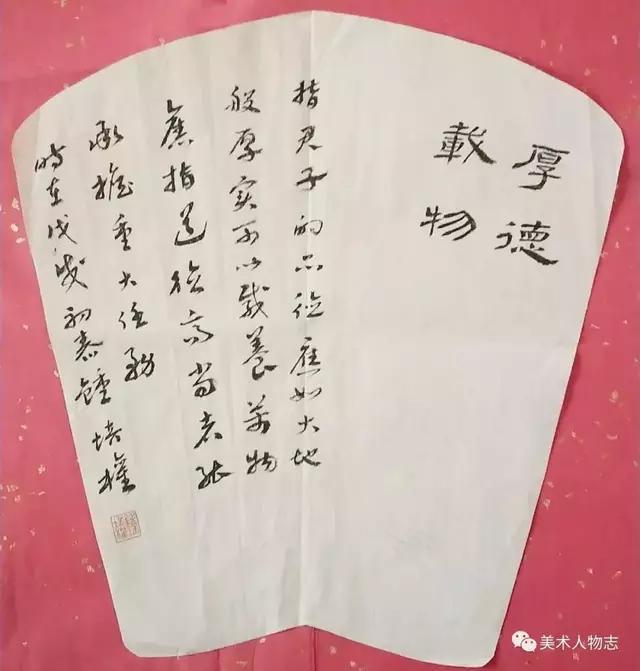 厚德
載物
指君子的品德應如大地
般厚實可以載養萬物
舊指道德高尚者能
承擔重大任務
時在戊戌初春鍾培權
美术人物志